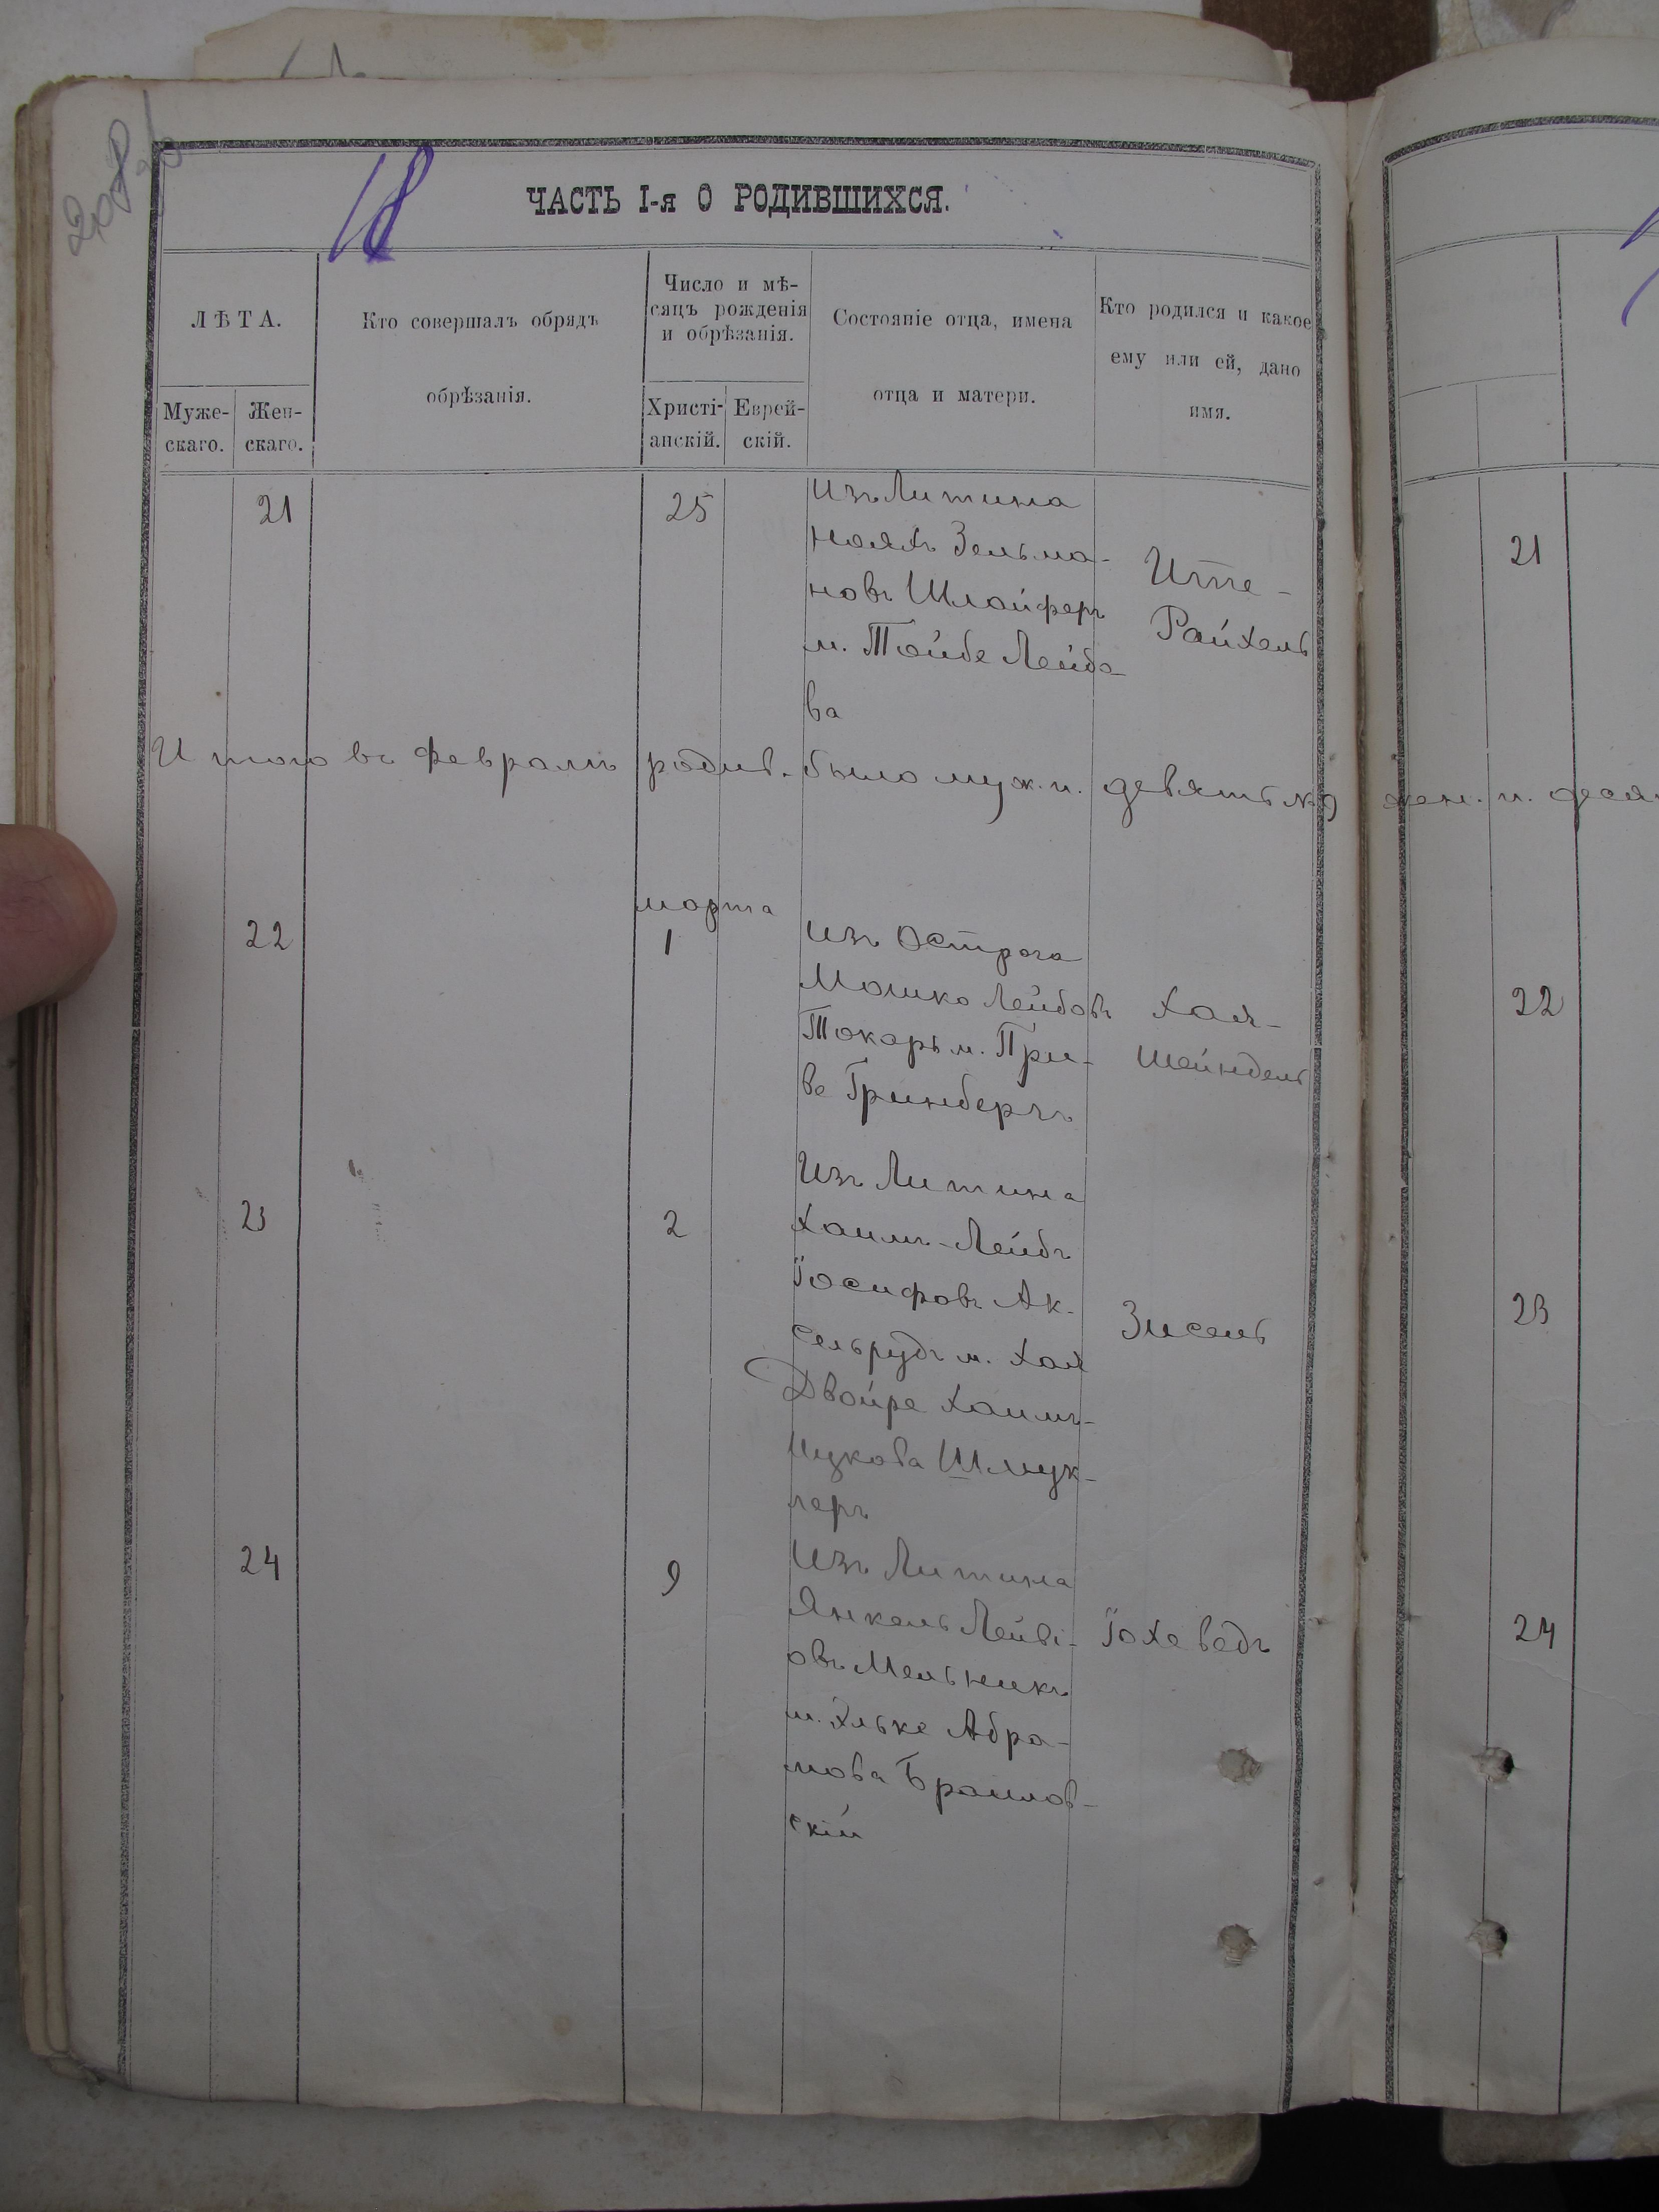 18
ЧАСТЬ I-я О РОДИВШИХСЯ.
ЛѢТА.
Муже-
скаго.
Жен-
скаго.
Кто совершалъ обрядъ
обрѣзанія.
Число и мѣ-
сяцъ рожденія
и обрѣзанія.
Христі-
анскій.
Еврей-
скій.
Состояніе отца, имена
отца и матери.
Кто родился и какое
ему или ей, дано
имя.
21
25
Изъ Литина
Нояхъ Зельма-
новъ Шлойферъ
м. Тойбе Лейбо-
ва
Итте-
Райхель
21
Итого въ февралѣ родив. было муж. п. девять № 9 жен. п. деся
марта
22
1
Изъ Острога
Мошко Лейбовъ
Токарь м. При-
ве Гринбергъ
Хая-
Шейндель
22
23
2
Изъ Литина
Хаимъ-Лейбъ
Іосифовъ Ак-
сельрудъ м. Хая
Двойре Хаимъ-
Ицкова Шмук-
леръ
Зисель
23
24
9
Изъ Литина
Янкель Лейві-
овъ Мельникъ
м. Элька Абра-
мова Браилов-
скій
Іохеведъ
24